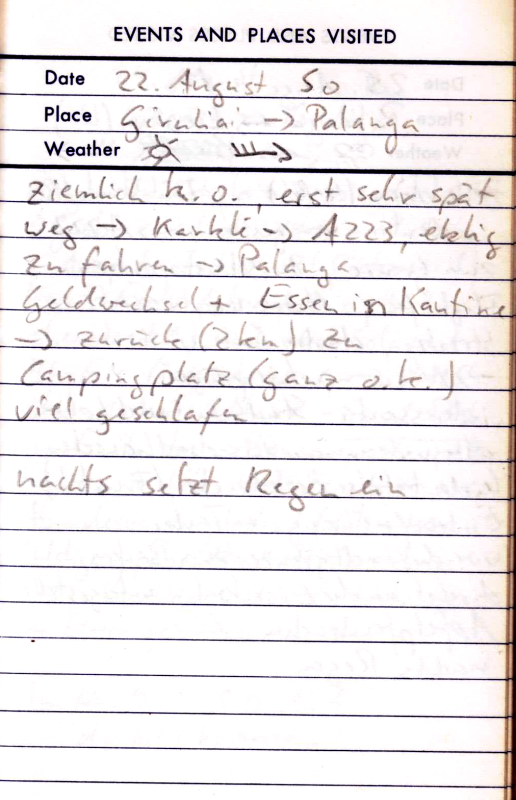 EVENTS AND PLACES VISITED
Date 22. August 50
Place Giruliai → Palanga
Weather
ziemlich k.o., erst sehr spät
weg → Karklė → A223, eklig
zu fahren → Palanga
Geldwechsel + Essen in Kantine
→ zurück (2km) zu
Campingplatz (ganz o.k.)
viel geschlafen
nachts setzt Regen ein